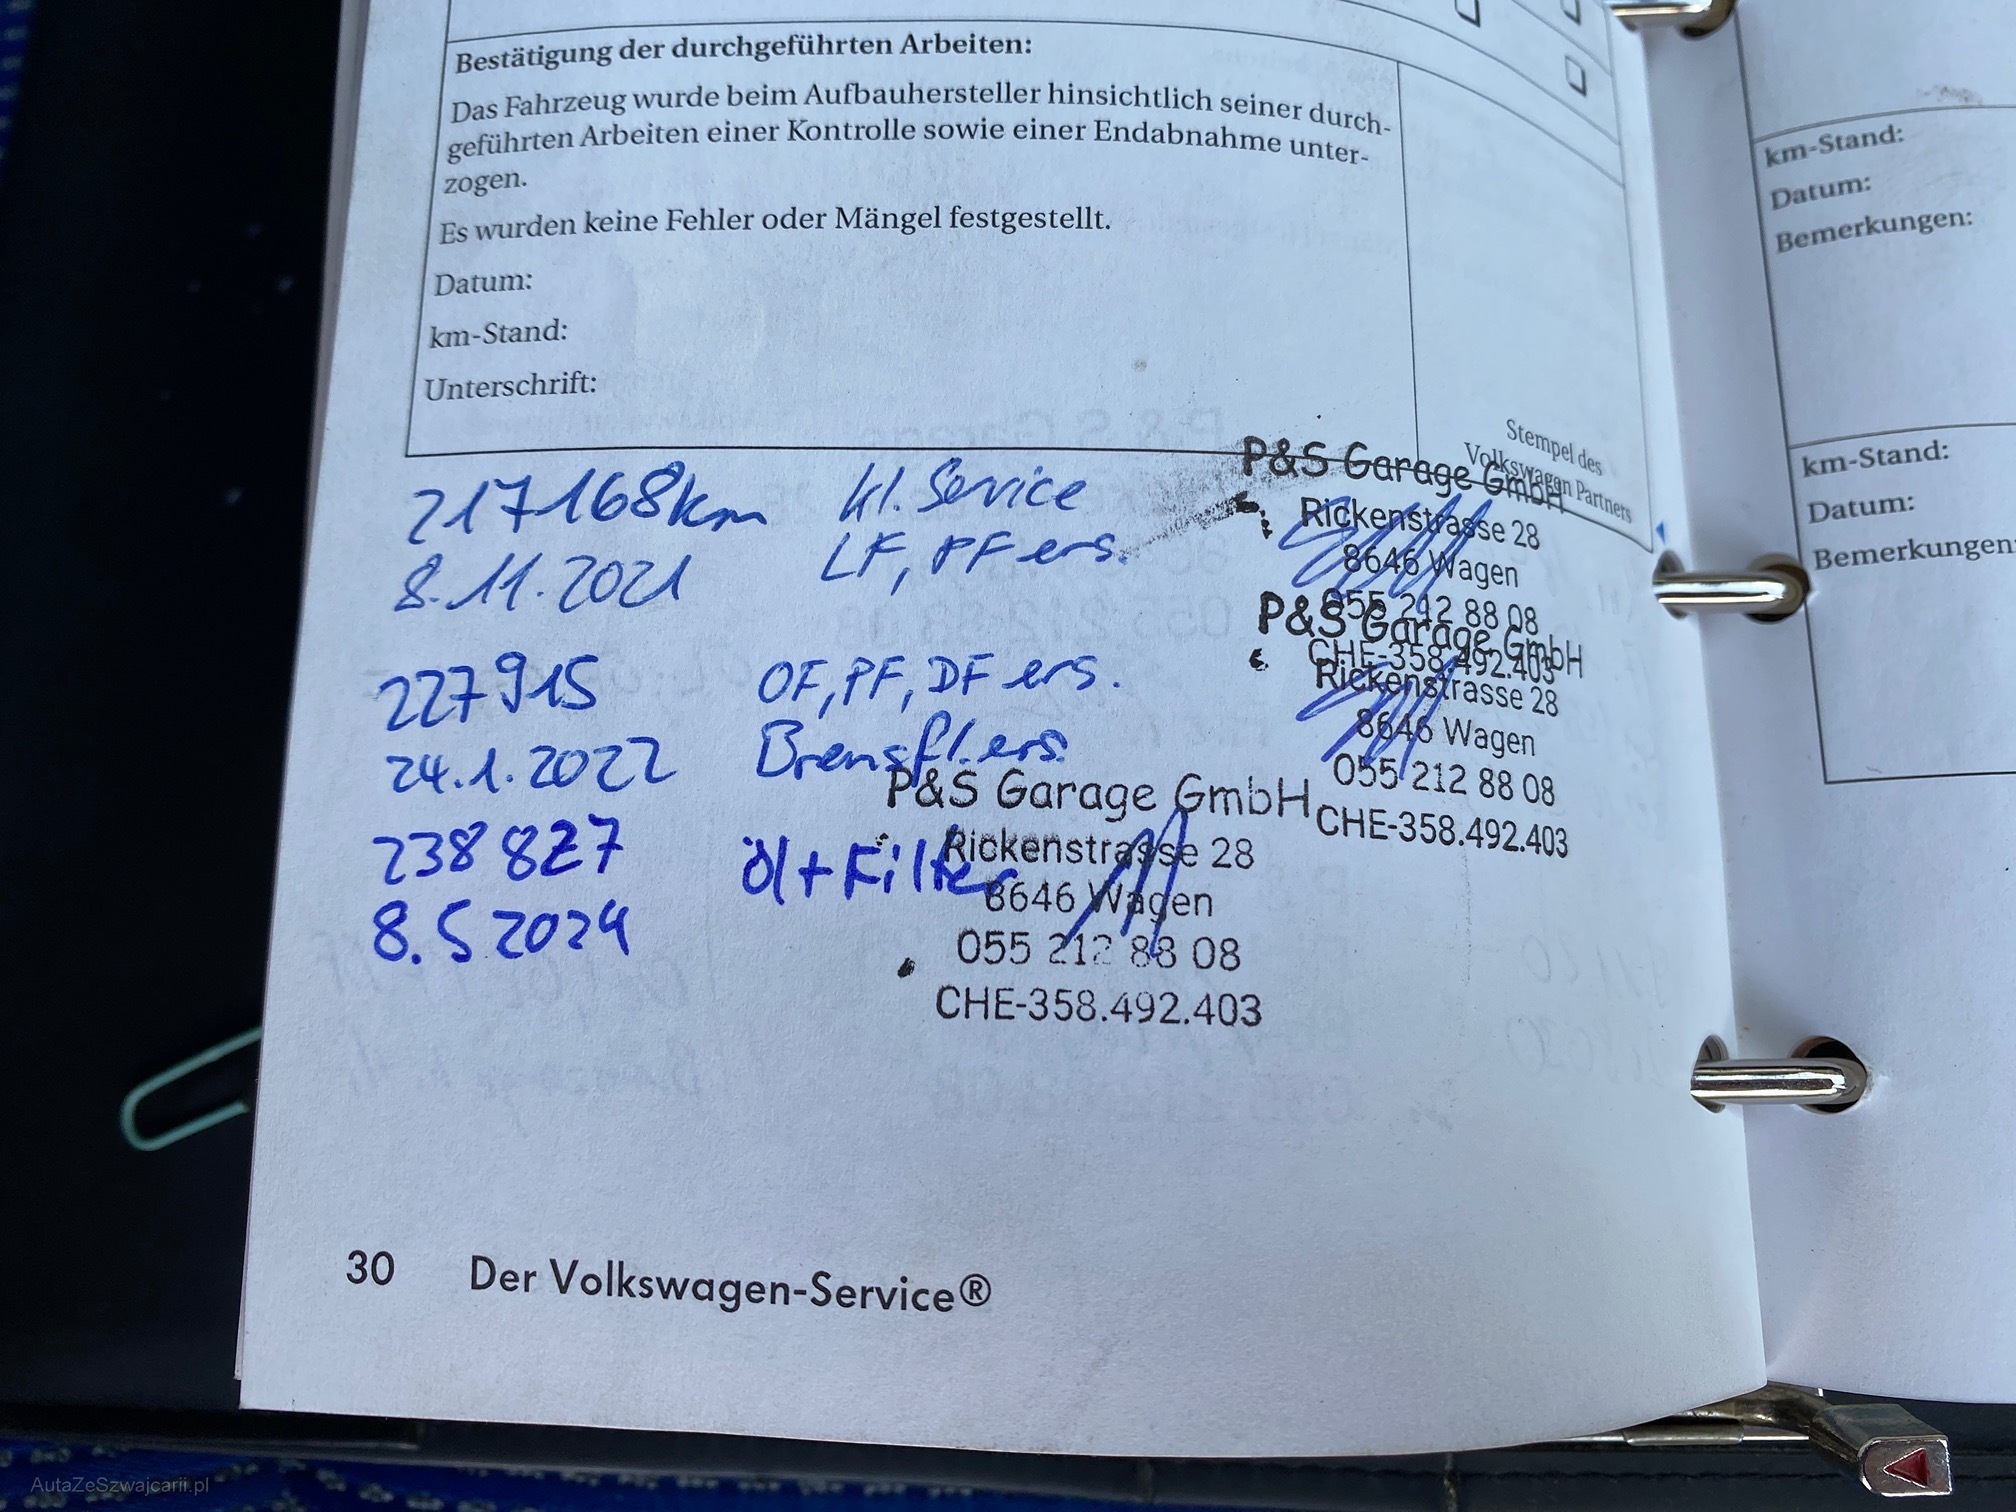 Bestätigung der durchgeführten Arbeiten:
Das Fahrzeug wurde beim Aufbauhersteller hinsichtlich seiner durch-
geführten Arbeiten einer Kontrolle sowie einer Endabnahme unter-
zogen.
Es wurden keine Fehler oder Mängel festgestellt.
Datum:
km-Stand:
Unterschrift:
Stempel des
Volkswagen Partners
217168km kl. Service
8.11.2021 LF, PF ers.
P&S Garage GmbH
Rickenstrasse 28
8646 Wagen
055 212 88 08
CHE-358.492.403
227915 OF, PF, DF ers.
24.1.2022 Bremsfl. ers.
P&S Garage GmbH
Rickenstrasse 28
8646 Wagen
055 212 88 08
CHE-358.492.403
238827 öl + Filter
8.5 2024
P&S Garage GmbH
Rickenstrasse 28
8646 Wagen
055 212 88 08
CHE-358.492.403
30 Der Volkswagen-Service®
km-Stand:
Datum:
Bemerkungen:
km-Stand:
Datum:
Bemerkungen:
AutaZeSzwajcarii.pl